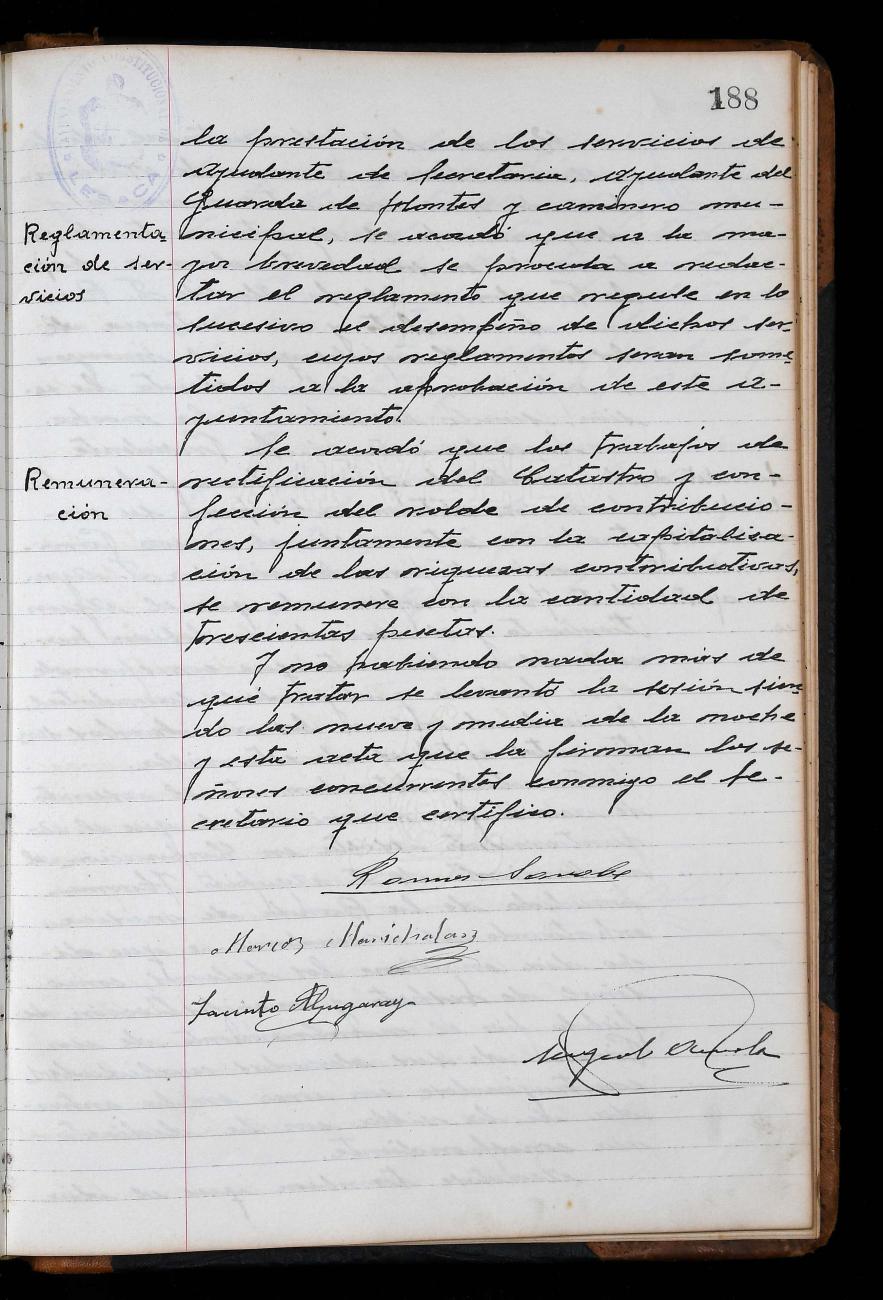 188
AYUNTAMIENTO CONSTITUCIONAL DE
LESACA
la prestación de los servicios de
ayudante de Secretaria, ayudante del
Guarda de Montes y caminero mu-
Reglamenta-
ción de ser-
vicios
nicipal, se acordó que a la ma-
yor brevedad se proceda a redac-
tar el reglamento que regule en lo
sucesivo el desempeño de dichos ser-
vicios, cuyos reglamentos seran some-
tidos a la aprobación de este a-
yuntamiento.
Se acordó que los trabajos de
Remunera-
ción
rectificación del Catastro y con-
fección del rolde de contribucio-
nes, juntamente con la capitalisa-
ción de las riquezas contributivas,
se remunere con la cantidad de
trescientas pesetas.
Y no habiendo nada más de
qué tratar se levantó la sesión sien-
do las nueve y media de la noche
y esta acta que la firman los se-
ñores concurrentes conmigo el Se-
cretario que certifico.
Marcos Marichalar
Jacinto
Miguel